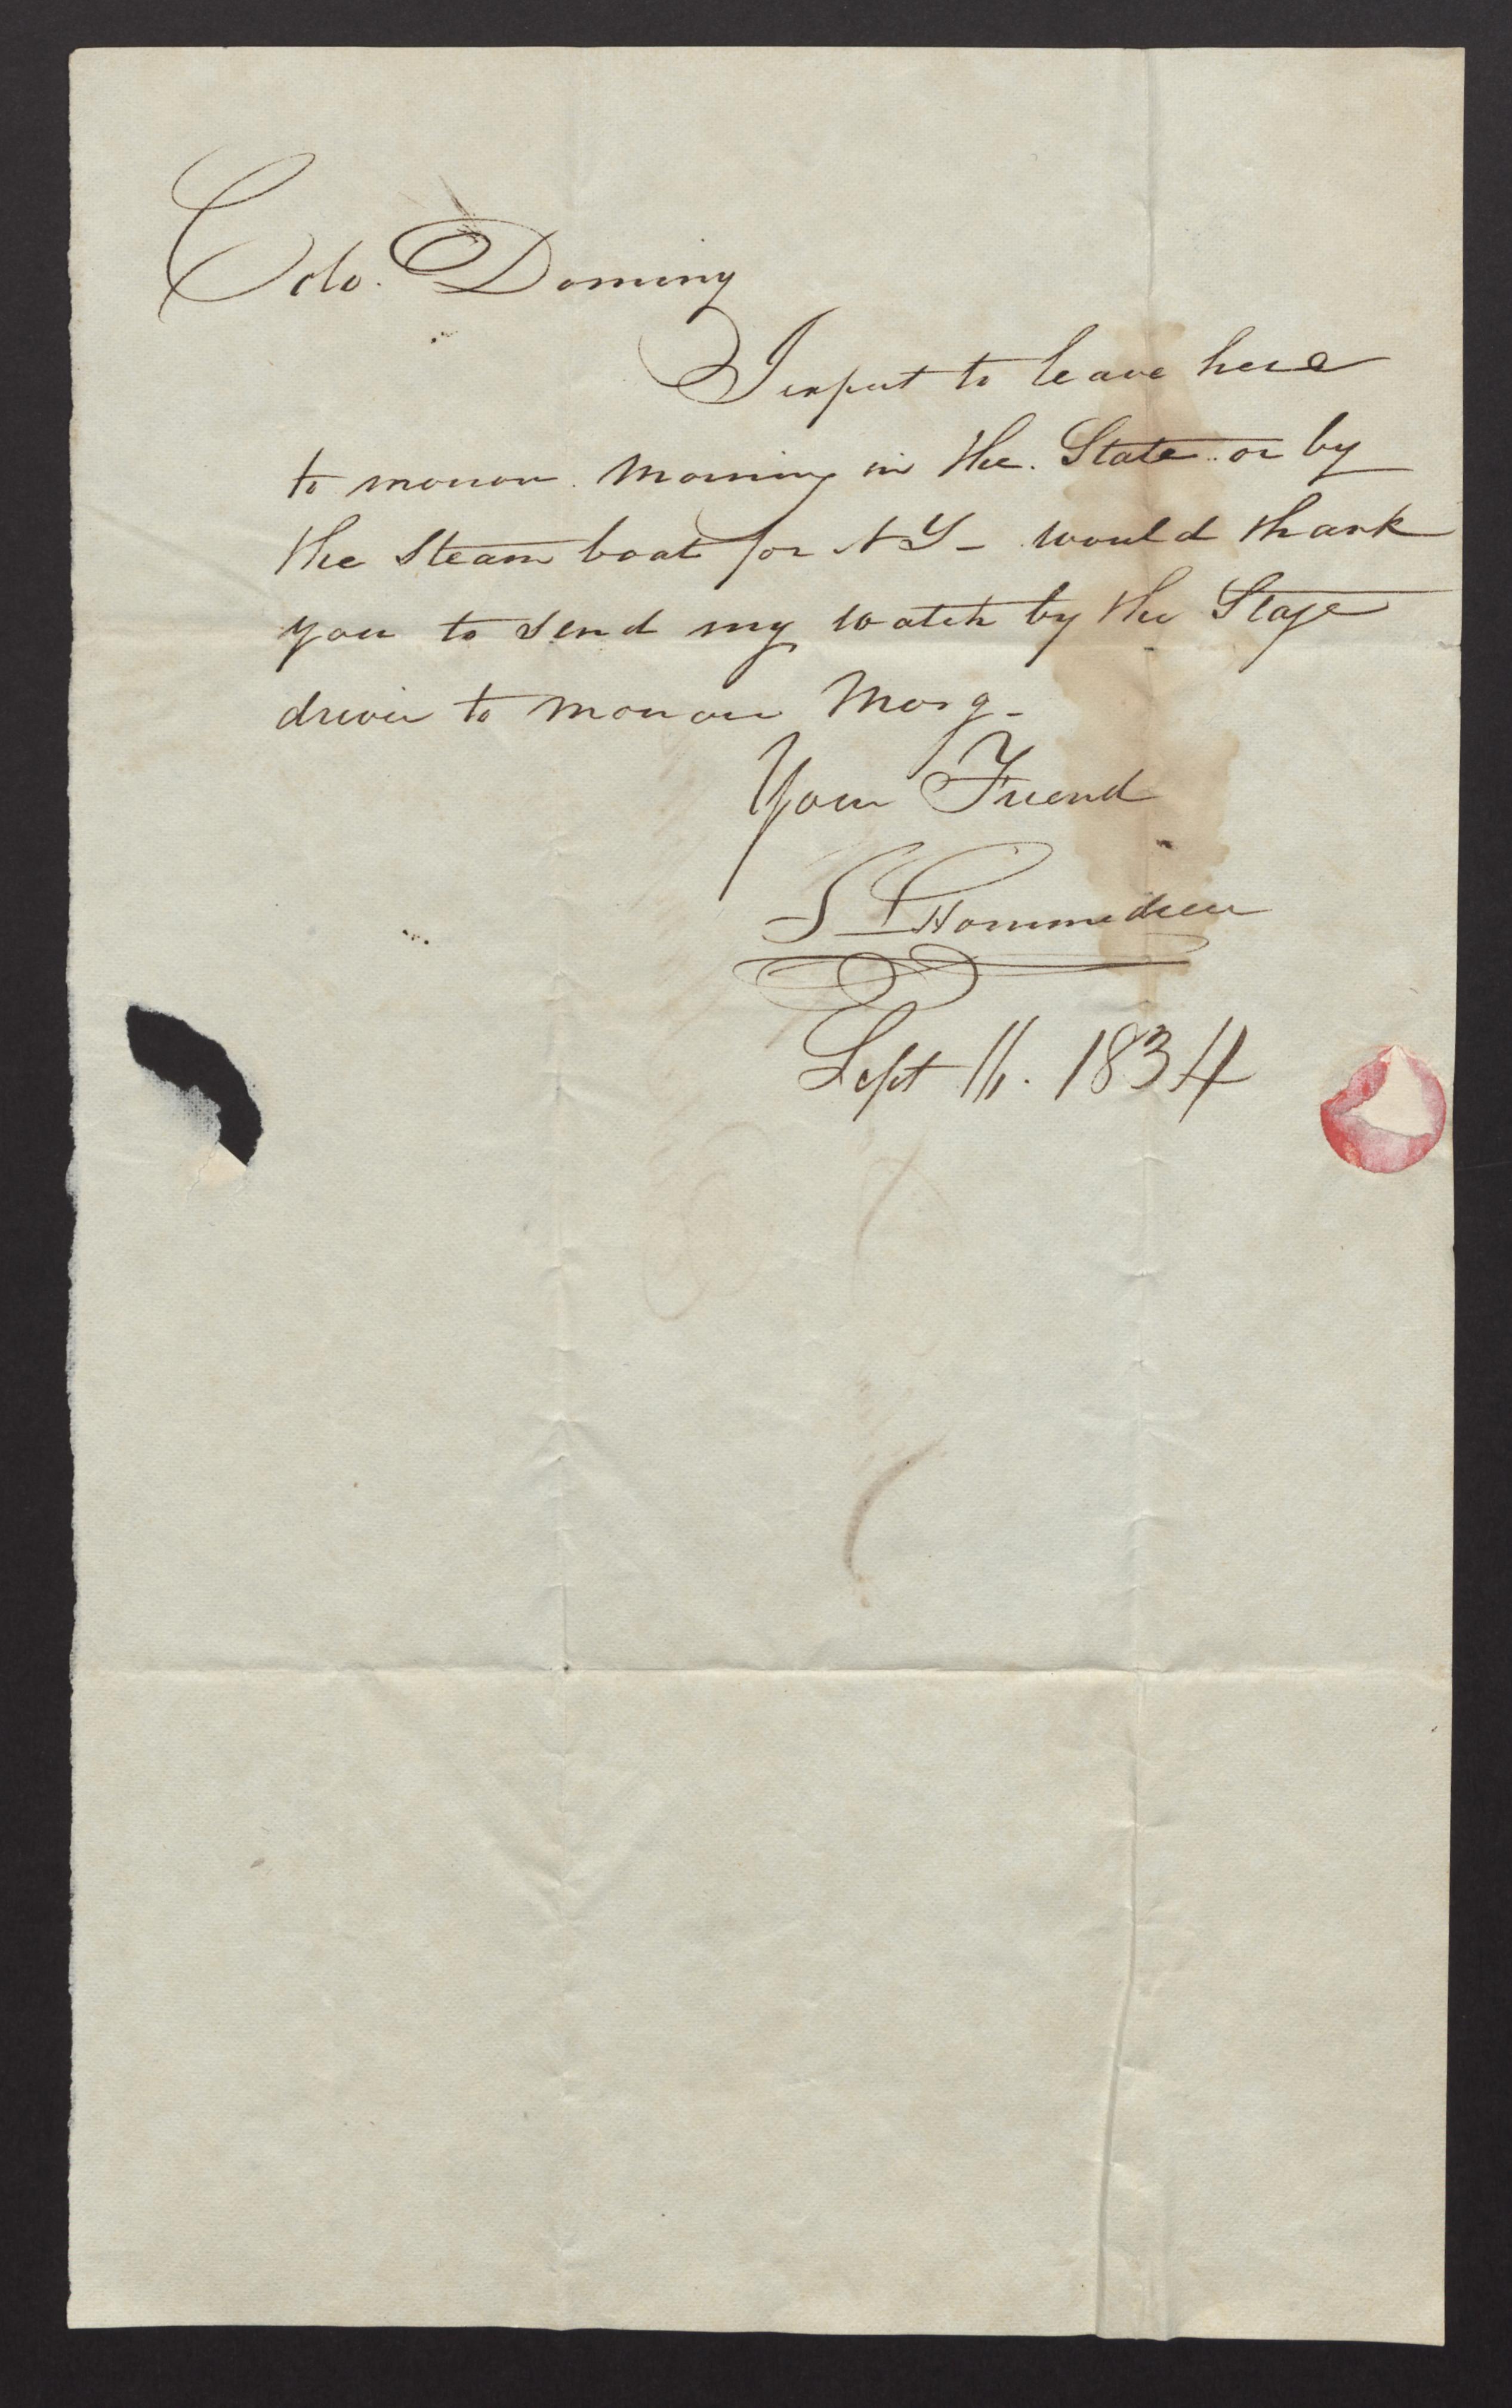 Colo. Dominy
I expect to leave here
to morrow morning in the State or by
the Steam boat for N Y - would thank
you to send my watch by the Stage
driver to morrow Morg -
Your Friend
S L Hommedieu
Sept 16. 1834